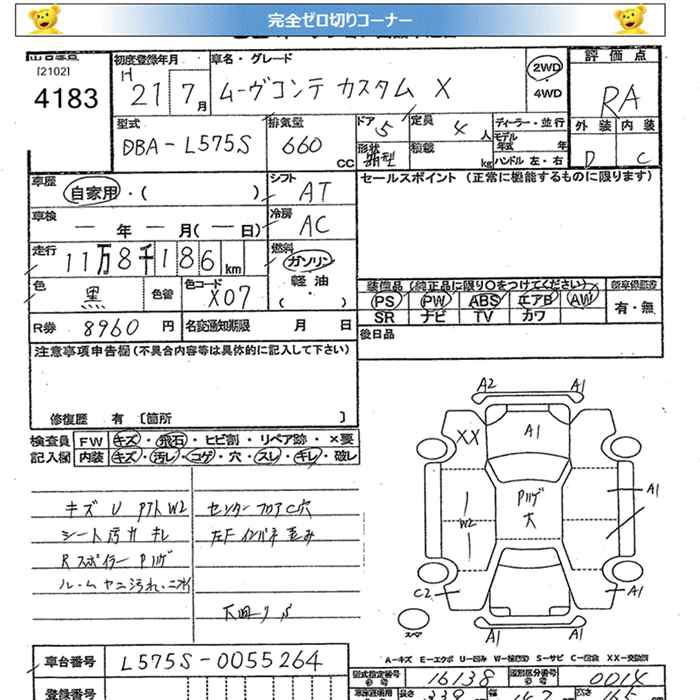 完全ゼロ切りコーナー
[2102]
4183
初度登録年月
H 21 7月
車名・グレード
ムーヴコンテ カスタム X
2WD
・4WD
評価点
RA
外装 内装
D C
型式
DBA-L575S
排気量
660 CC
ドア 5
形状
定員 4人
積載 kg
ディーラー・並行
モデル年式 年
ハンドル 左・右
車歴
自家用・( )
シフト
AT
セールスポイント (正常に機能するものに限ります)
車検
― 年 ― 月(― 日)
冷房
AC
走行
11万8千186km
燃料
ガソリン
軽油
・( )
色
黒
色替
色コード
X07
装備品(純正品に限り○をつけてください)
PS PW ABS エアB AW
SR ナビ TV カワ
有・無
R券 8960円
名変通知期限 月 日
後日品
注意事項申告欄(不具合内容等は具体的に記入して下さい)
修復歴 有 [箇所 ]
検査員記入欄
FW キズ・飛石・ヒビ割・リペア跡・×要
内装 キズ・汚レ・コゲ・穴・スレ・キレ・破レ
キズ U アクト W2
シート汚れ キレ
Rスポイラー Pハゲ
ルームヤニ汚れ、ニオイ
センターフロアC穴
左Fインパネ歪み
下回りS
A2 A1
XX
A1
W2
Pハゲ
大
A1
C2
A1
A1 A1
スペア
A-キズ E-エクボ U-凹み W-補修跡 S-サビ C-腐食 XX-交換済
車台番号
L575S-0055264
型式指定番号
16138
類別区分番号
0014
登録番号
長さ
幅
高さ